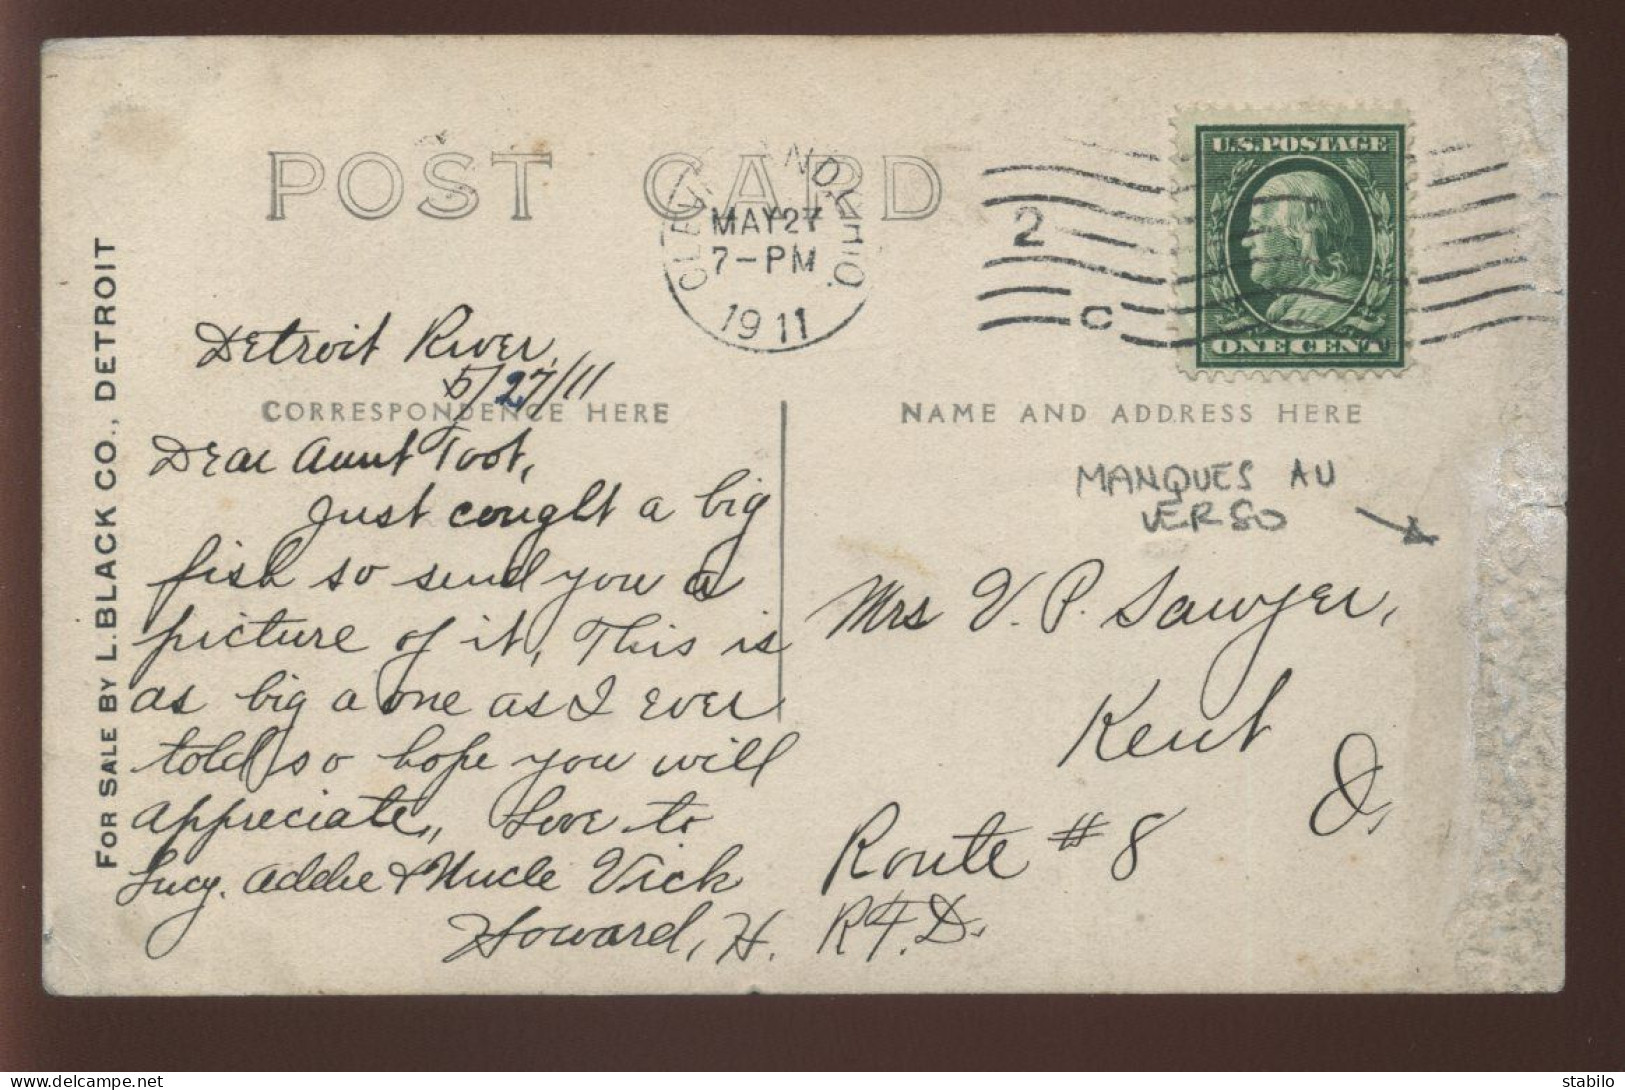 POST CARD
CLEVELAND, OHIO.
MAY 27
7-PM
1911
2
C
U.S. POSTAGE
ONE CENT
FOR SALE BY L. BLACK CO., DETROIT
Detroit River,
5/27/11
CORRESPONDENCE HERE
Dear Aunt Toot,
Just cought a big
fish so send you a
picture of it, This is
as big a one as I ever
told so hope you will
appreciate,, Love to
Lucy. Addie & Uncle Vick
Howard, H.
NAME AND ADDRESS HERE
MANQUES AU
VERSO
Mrs V. P. Sawyer,
Kent
O,
Route #8
R.F.D.
stabilo